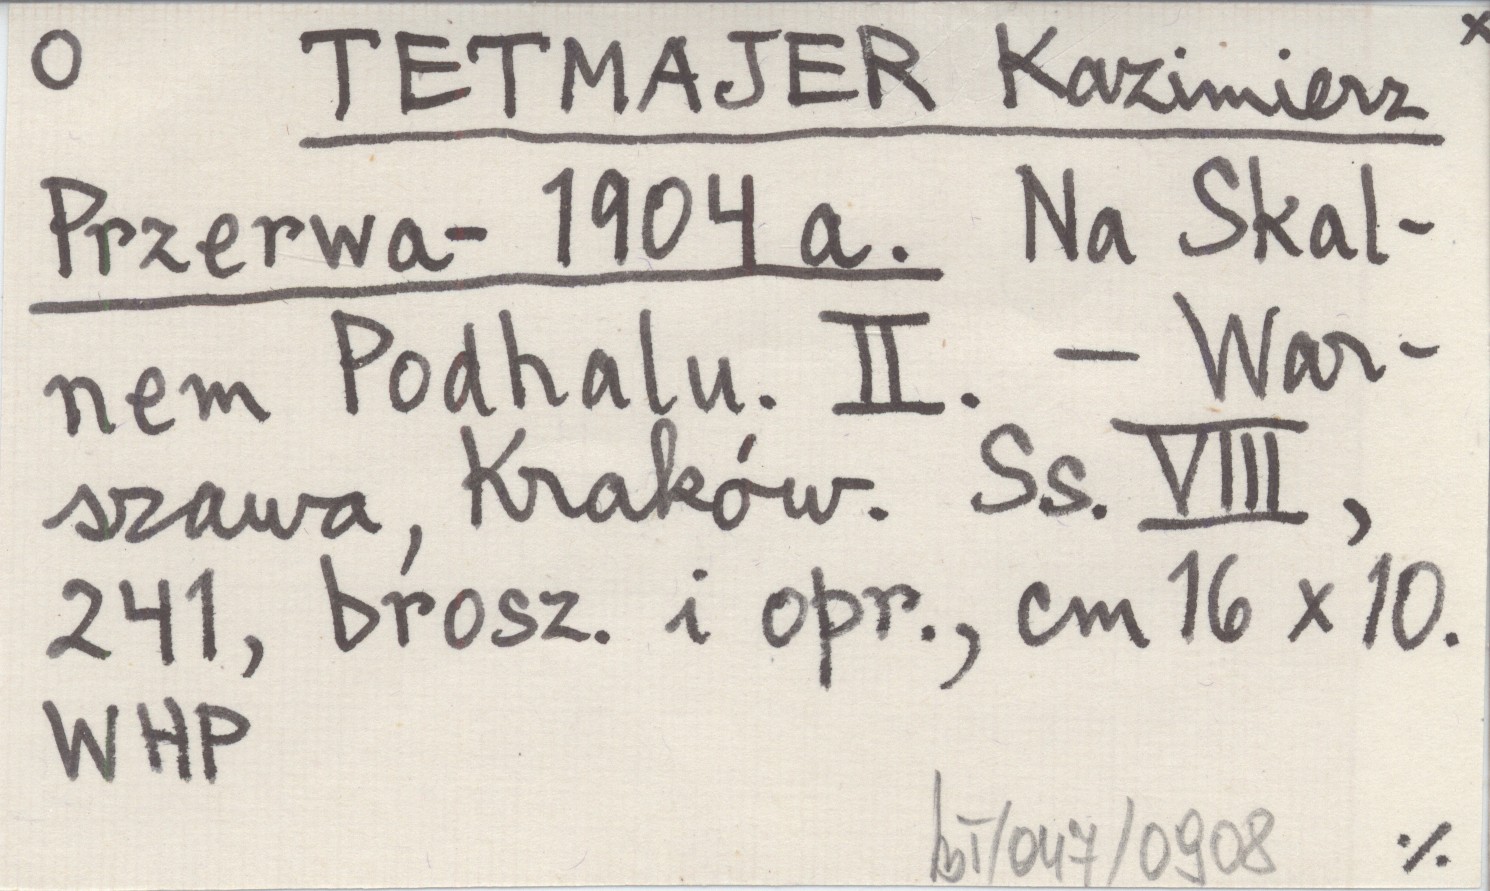 O TETMAJER Kazimierz x
Przerwa- 1904 a. Na Skal-
nem Podhalu. II. – War-
szawa, Kraków. Ss. VIII,
241, brosz. i opr., cm 16 x 10.
WHP
/047/0908 ./.